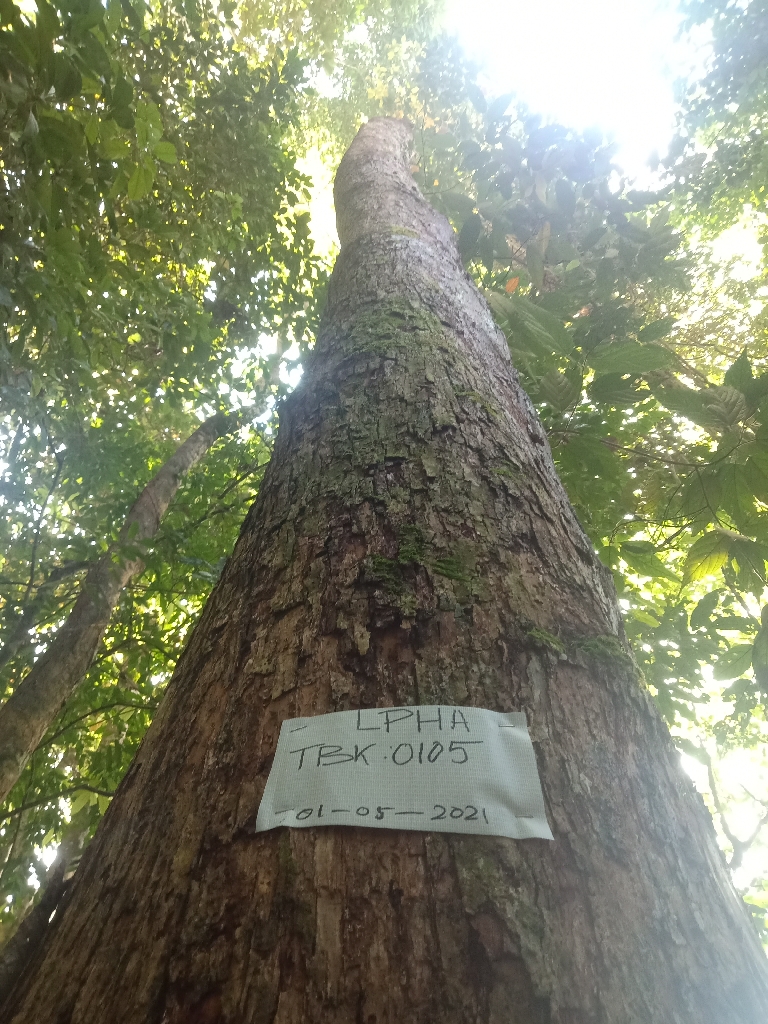 LPHA
TBK.0105
01-05-2021